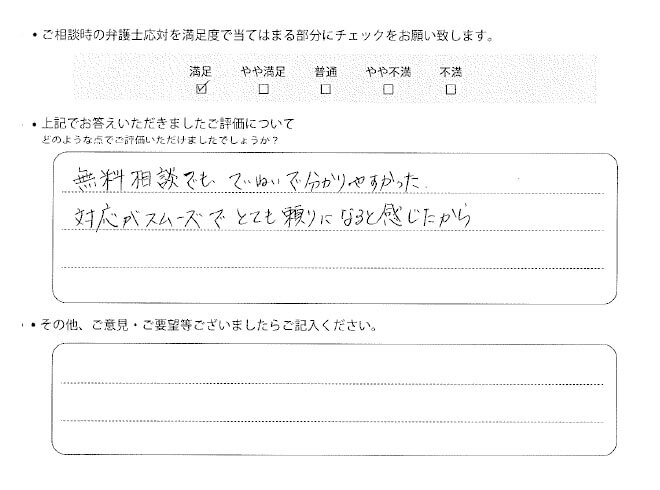 ・ご相談時の弁護士応対を満足度で当てはまる部分にチェックをお願い致します。
満足 やや満足 普通 やや不満 不満
☑ □ □ □ □
・上記でお答えいただきましたご評価について
どのような点でご評価いただけましたでしょうか？
無料相談でも ていねいで分かりやすかった.
対応がスムーズで とても頼りになると感じたから
・その他、ご意見・ご要望等ございましたらご記入ください。